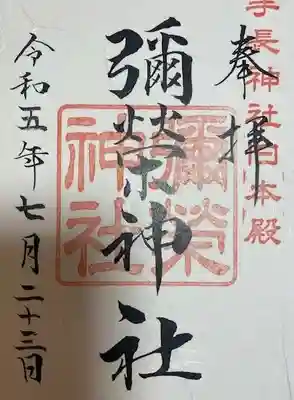 手長神社旧本殿
奉拝
彌榮神社
彌榮
神社
令和五年七月二十三日